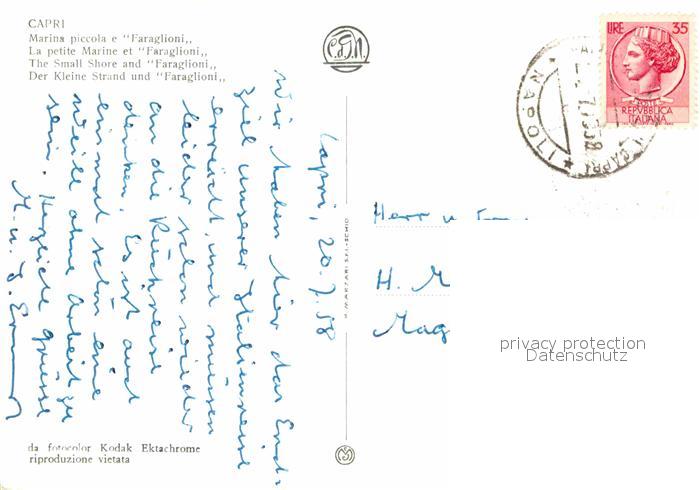 CAPRI
Marina piccola e "Faraglioni,,
La petite Marine et "Faraglioni,,
The Small Shore and "Faraglioni,,
Der Kleine Strand und "Faraglioni,,
LIRE 35
POSTE
REPVBBLICA
ITALIANA
NAPOLI
CAPRI
Capri, 20.7.58
Wir haben hier das End-
ziel unserer Italienreise
erreicht, und müssen
leider schon wieder
an die Rückreise
denken. Es ist auch
einmal schön eine
Weile ohne Arbeit zu
sein. Herzliche Grüsse
Herr u
H. M
Mag
privacy protection
Datenschutz
da fotocolor Kodak Ektachrome
riproduzione vietata